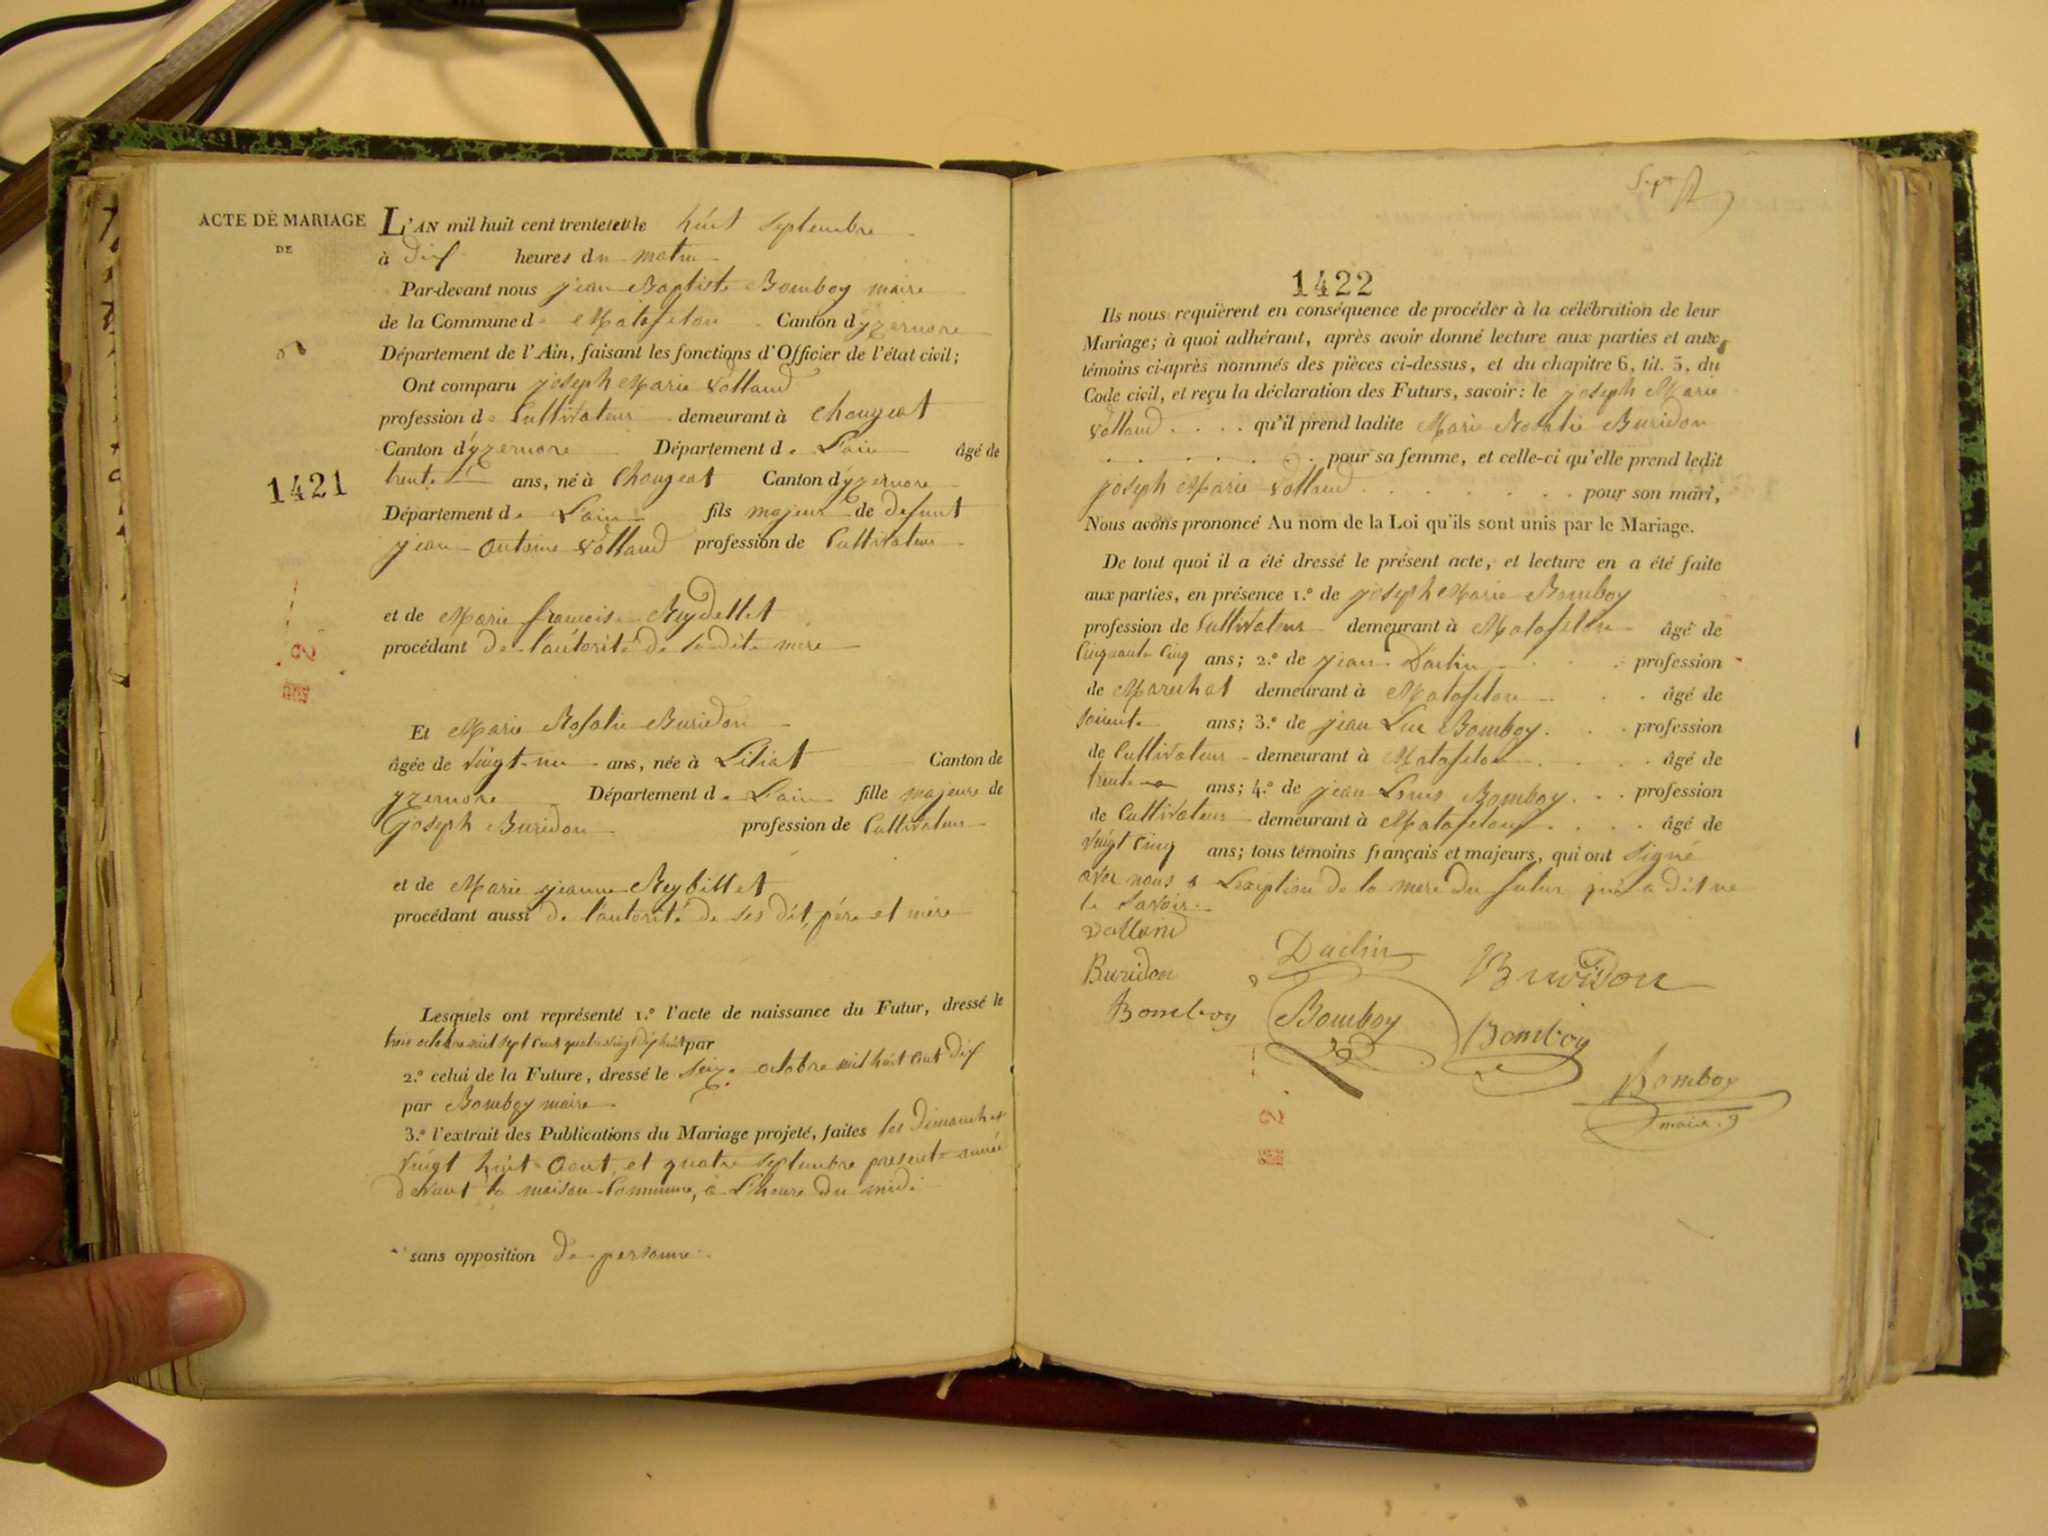 ACTE DE MARIAGE
DE
1421
L'AN mil huit cent trente et un le huit septembre
à dix heures du matin
Par-devant nous jean Baptiste Bomboy maire
de la Commune de Matafelon Canton d'yzernore
Département de l'Ain, faisant les fonctions d'Officier de l'état civil;
Ont comparu joseph Marie Volland
profession de Cultivateur demeurant à Chougeat
Canton d'yzernore Département de L'ain âgé de
trente ans, né à Chougeat Canton d'yzernore
Département de L'ain fils majeur de defunt
jean antoine Volland profession de Cultivateur
et de Marie françoise Reydellet
procédant de l'autorité de sa dite mère
Et Marie Rosalie Buridon
âgée de vingt un ans, née à Liliat Canton de
yzernore Département de L'ain fille majeure de
joseph Buridon profession de Cultivateur
et de Marie jeanne Reybillet
procédant aussi de l'autorité de ses dit, père et mère
Lesquels ont représenté 1.º l'acte de naissance du Futur, dressé le
trois octobre mil sept cent quatre vingt dix huit par
2.º celui de la Future, dressé le seize octobre mil huit cent dix
par Bomboy maire
3.º l'extrait des Publications du Mariage projeté, faites les dimanches
vingt huit aout, et quatre septembre presente année
devant la maison Commune, à L'heure du midi
sans opposition de personne
Sept
1422
Ils nous requièrent en conséquence de procéder à la célébration de leur
Mariage; à quoi adhérant, après avoir donné lecture aux parties et aux
témoins ci-après nommés des pièces ci-dessus, et du chapitre 6, tit. 5, du
Code civil, et reçu la déclaration des Futurs, savoir: le joseph Marie
Volland . . . . qu'il prend ladite Marie Rosalie Buridon
. . . . . . . pour sa femme, et celle-ci qu'elle prend ledit
joseph Marie Volland . . . . . . . pour son mari,
Nous avons prononcé Au nom de la Loi qu'ils sont unis par le Mariage.
De tout quoi il a été dressé le présent acte, et lecture en a été faite
aux parties, en présence 1.º de joseph Marie Bomboy
profession de Cultivateur demeurant à Matafelon âgé de
Cinquante Cinq ans; 2.º de jean Daclin . . . profession
de Marechal demeurant à Matafelon . . . âgé de
soixente ans; 3.º de jean Luc Bomboy . . . profession
de Cultivateur demeurant à Matafelon . . . . âgé de
trente ans; 4.º de jean Louis Bomboy . . . profession
de Cultivateur demeurant à Matafelon . . . . âgé de
vingt Cinq ans; tous témoins français et majeurs, qui ont signé
avec nous à L'exeption de la mere du futur qui a dit ne
le savoir.
Volland
Daclin
Buridon
Buridon
Bomboy
Bomboy
Bomboy
Bomboy
maire